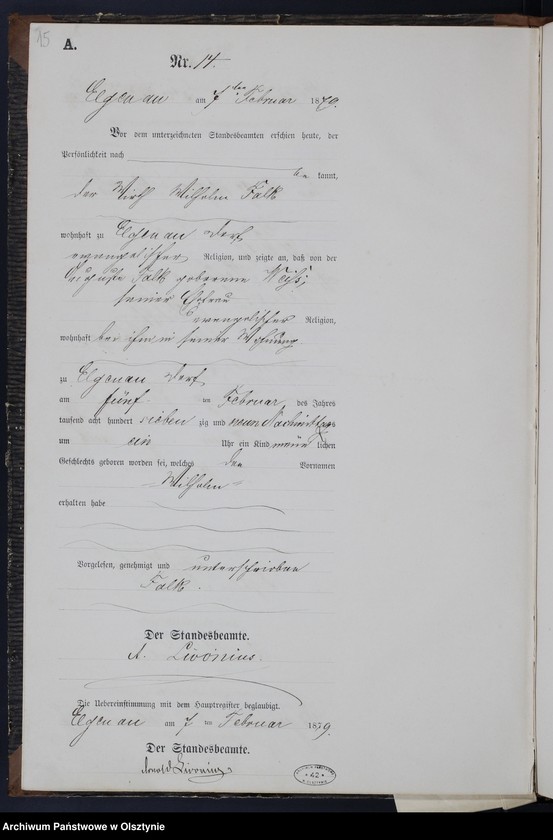 15
A.
Nr. 14.
Elgenau am 7ten Februar 1879.
Vor dem unterzeichneten Standesbeamten erschien heute, der
Persönlichkeit nach
be kannt,
der Wirth Wilhelm Falk
wohnhaft zu Elgenau Dorf
evangelischer Religion, und zeigte an, daß von der
Auguste Falk geborene Weiß,
seiner Ehefrau
evangelischer Religion,
wohnhaft bei ihm in seiner Wohnung
zu Elgenau Dorf
am fünf ten Februar des Jahres
tausend acht hundert sieben zig und neun Nachmittags
um ein Uhr ein Kind männ lichen
Geschlechts geboren worden sei, welches den Vornamen
Wilhelm
erhalten habe
Vorgelesen, genehmigt und unterschrieben
Falk.
Der Standesbeamte.
A. Livonius.
Die Uebereinstimmung mit dem Hauptregister beglaubigt.
Elgenau am 7 ten Februar 1879.
Der Standesbeamte.
Arnold Livonius
42
Archiwum Państwowe w Olsztynie